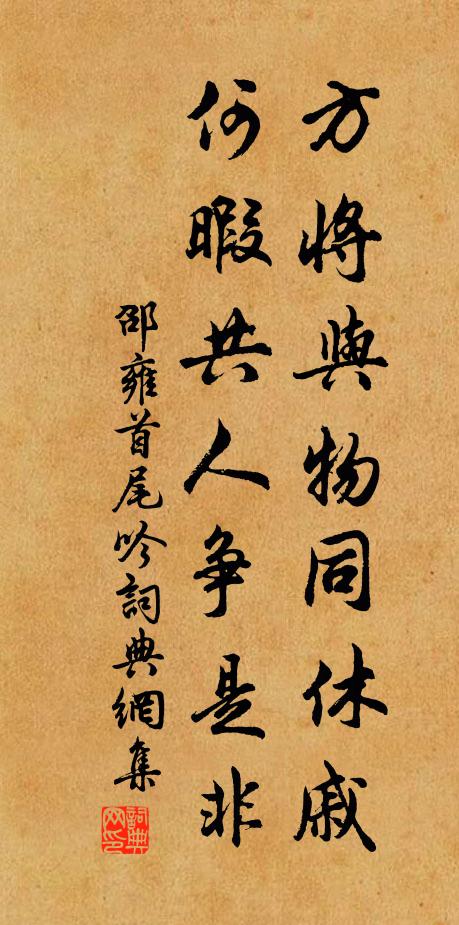 方將與物同休戚
何暇共人争是非
邵雍首尾吟詞典網集
詞典网印